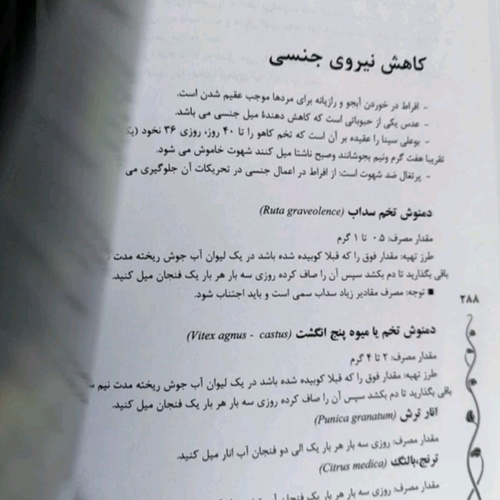 کاهش نیروی جنسی
- افراط در خوردن آبجو و رازیانه برای مردها موجب عقیم شدن است.
- عدس یکی از حبوباتی است که کاهش دهندۀ میل جنسی می باشد.
- بوعلی سینا را عقیده بر آن است که تخم کاهو را تا ۴۰ روز، روزی ۳۶ نخود (یک
تقریبا هفت گرم ونیم بجوشانند وصبح ناشتا میل کنند شهوت خاموش می شود.
- پرتغال ضد شهوت است: از افراط در اعمال جنسی در تحریکات آن جلوگیری می
دمنوش تخم سداب (Ruta graveolence)
مقدار مصرف: ۰.۵ تا ۱ گرم
طرز تهیه: مقدار فوق را که قبلا کوبیده شده باشد در یک لیوان آب جوش ریخته مدت
باقی بگذارید تا دم بکشد سپس آن را صاف کرده روزی سه بار هر بار یک فنجان میل کنید.
■ توجه: مصرف مقادیر زیاد سداب سمی است و باید اجتناب شود.
۲۸۸
دمنوش تخم یا میوه پنج انگشت (Vitex agnus - castus)
مقدار مصرف: ۲ تا ۴ گرم
طرز تهیه: مقدار فوق را که قبلا کوبیده شده باشد در یک لیوان آب جوش ریخته مدت نیم
باقی بگذارید تا دم بکشد سپس آن را صاف کرده روزی سه بار هر بار یک فنجان میل کنید.
انار ترش (Punica granatum)
مقدار مصرف: روزی سه بار هر بار یک الی دو فنجان آب انار میل کنید.
ترنج،بالنگ (Citrus medica)
مقدار مصرف: روزی سه بار هر بار یک فنجان